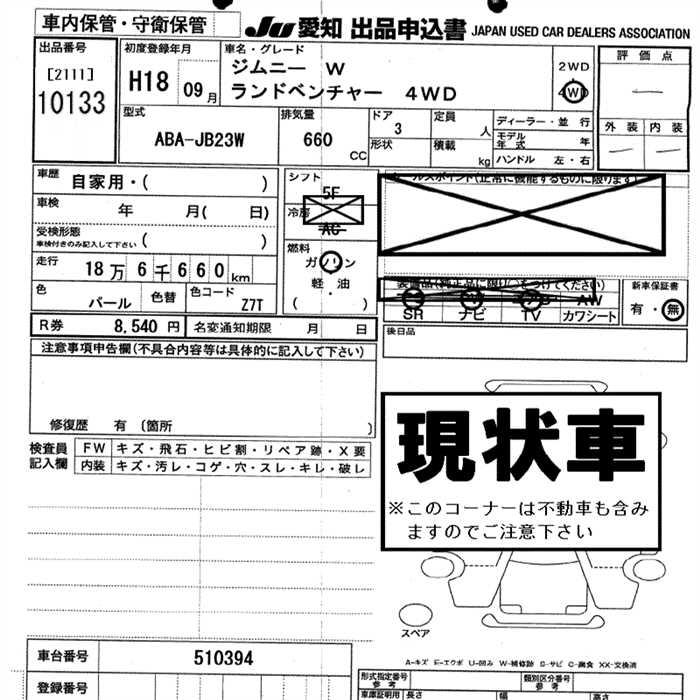 車内保管・守衛保管
JU 愛知 出品申込書 JAPAN USED CAR DEALERS ASSOCIATION
出品番号
[2111]
10133
初度登録年月
H18 09月
車名・グレード
ジムニー W
ランドベンチャー 4WD
2WD
4WD
評価点
外装 内装
型式
ABA-JB23W
排気量
660
CC
ドア
3
形状
定員
人
積載
kg
ディーラー・並行
モデル年式 年
ハンドル 左・右
車歴
自家用・( )
車検
年 月( 日)
受検形態
車検付きのみ記入して下さい
( )
走行
18万6千660km
色
パール
色替
色コード
Z7T
シフト
5F
冷房
AC
燃料
ガソリン
軽油
( ・ )
セールスポイント(正常に機能するものに限ります)
装置品(純正品に限り○をつけてください)
SR
ナビ
TV
AW
カワシート
新車保証書
有・無
後日品
R券 8,540 円
名変通知期限 月 日
注意事項申告欄(不具合内容等は具体的に記入して下さい)
修復歴 有 〔箇所 〕
検査員記入欄
FW キズ・飛石・ヒビ割・リペア跡・X要
内装 キズ・汚レ・コゲ・穴・スレ・キレ・破レ
現状車
※このコーナーは不動車も含み
ますのでご注意下さい
スペア
A-キズ E-エクボ U-凹み W-補修跡 S-サビ C-腐食 XX-交換済
車台番号
510394
登録番号
形式指定番号
参考
類別区分番号
参考
車庫証明用
長さ
幅
高さ